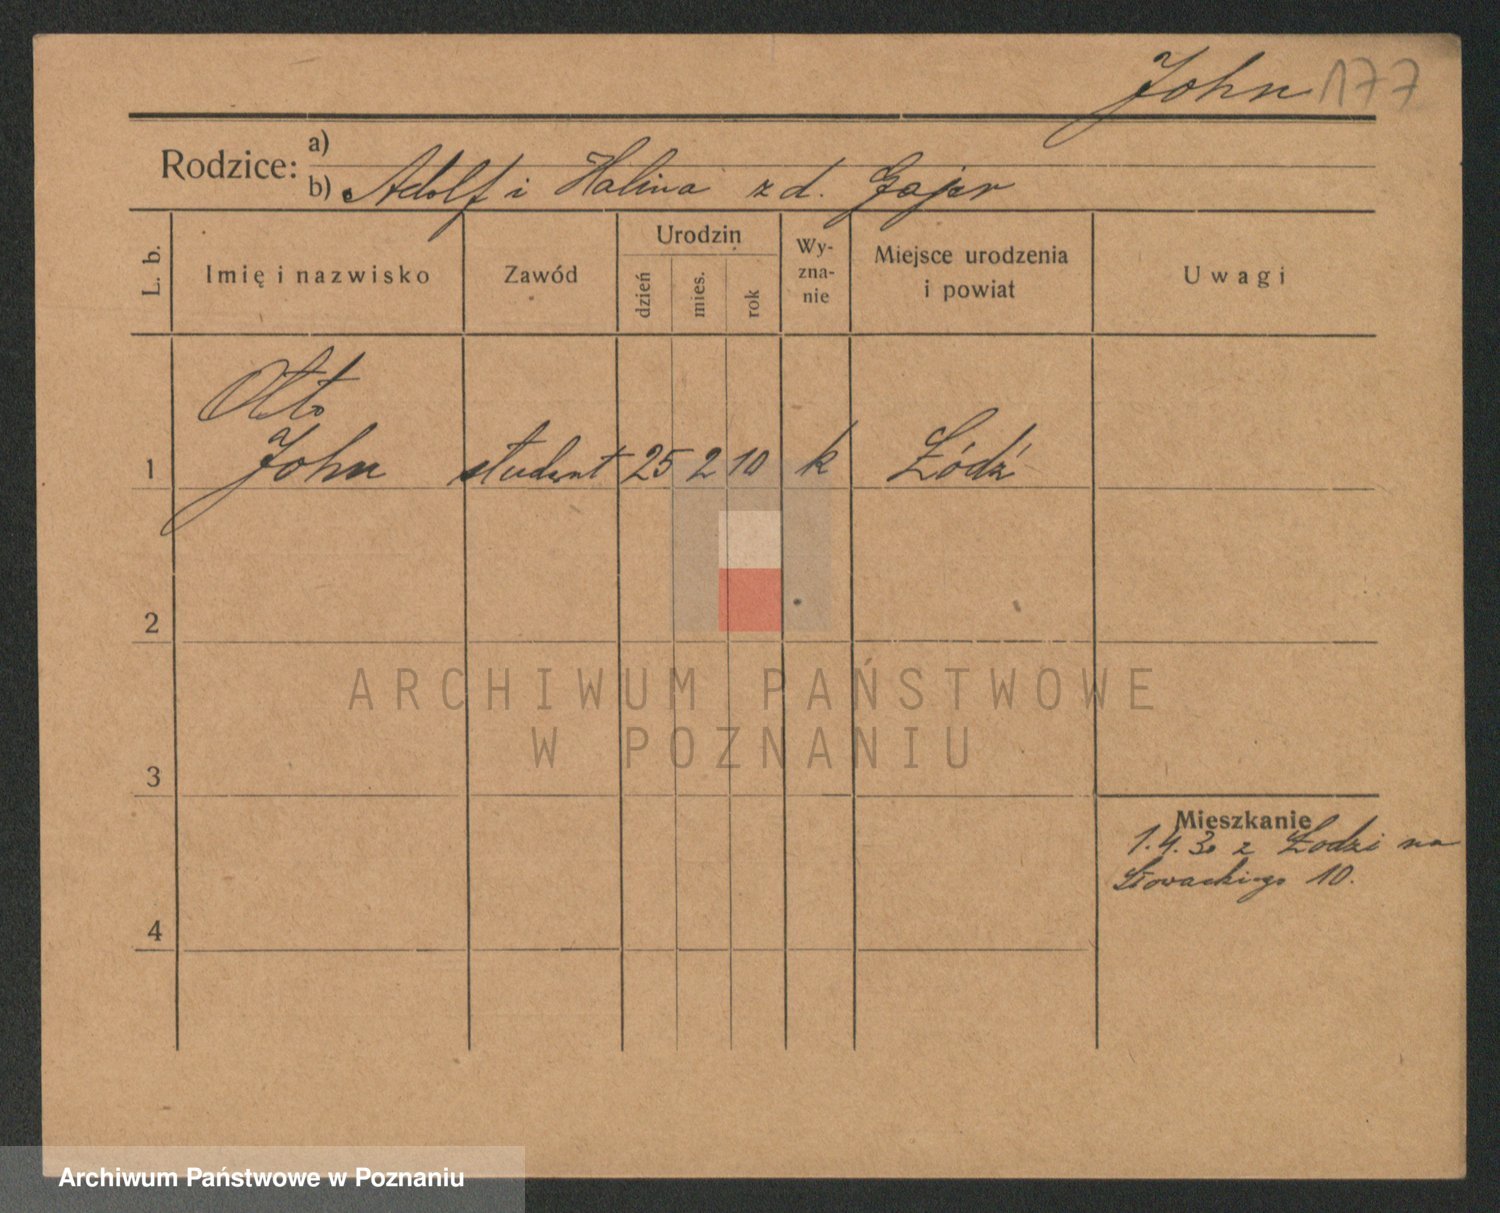 John 177
Rodzice:
a)
b) Adolf i Halina z d. Gajer
L. b.
Imię i nazwisko
Zawód
Urodzin
dzień
mies.
rok
Wy-
zna-
nie
Miejsce urodzenia
i powiat
Uwagi
Otto
1 John student 25 2 10 k Łódź
2
3
4
Mieszkanie
1.4.30 z Łodzi na
Słowackiego 10.
ARCHIWUM PAŃSTWOWE
W POZNANIU
Archiwum Państwowe w Poznaniu